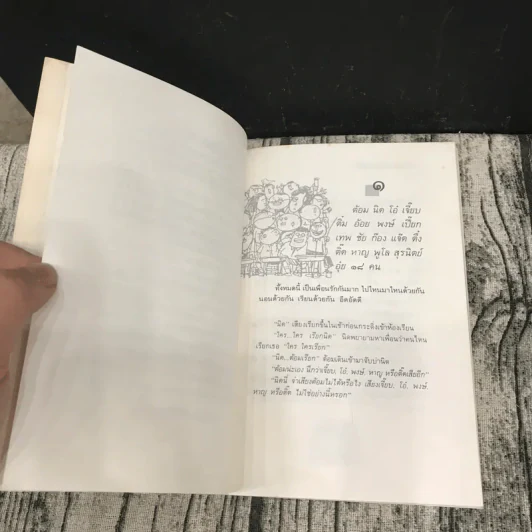 ๑
ต้อม นิด โอ๋ เจี๊ยบ
ติ๋ม อ้อย พงษ์ เปี๊ยก
เทพ ชัย ก้อง แจ๊ด ตึ๋ง
ติ๊ก หาญ พูโล สุรนิตย์
อุ๋ย ๑๘ คน
ทั้งหมดนี้ เป็นเพื่อนรักกันมาก ไปไหนมาไหนด้วยกัน
นอนด้วยกัน เรียนด้วยกัน ฮิตฮัดดี
"นิด" เสียงเรียกขึ้นในเช้าก่อนกระดิ่งเข้าห้องเรียน
"ใคร..ใคร เรียกนิด" นิดพยายามหาเพื่อนว่าคนไหน
เรียกเธอ "ใคร ใครเรียก"
"นิด...ต้อมเรียก" ต้อมเดินเข้ามาจับบ่านิด
"ต้อมน่ะเอง นึกว่าเจี๊ยบ, โอ๋, พงษ์, หาญ หรือติ๊กเสียอีก"
"นิดนี่ จำเสียงต้อมไม่ได้หรือไง เสียงเจี๊ยบ, โอ๋, พงษ์,
หาญ หรือติ๊ก ไม่ใช่อย่างนี้หรอก"